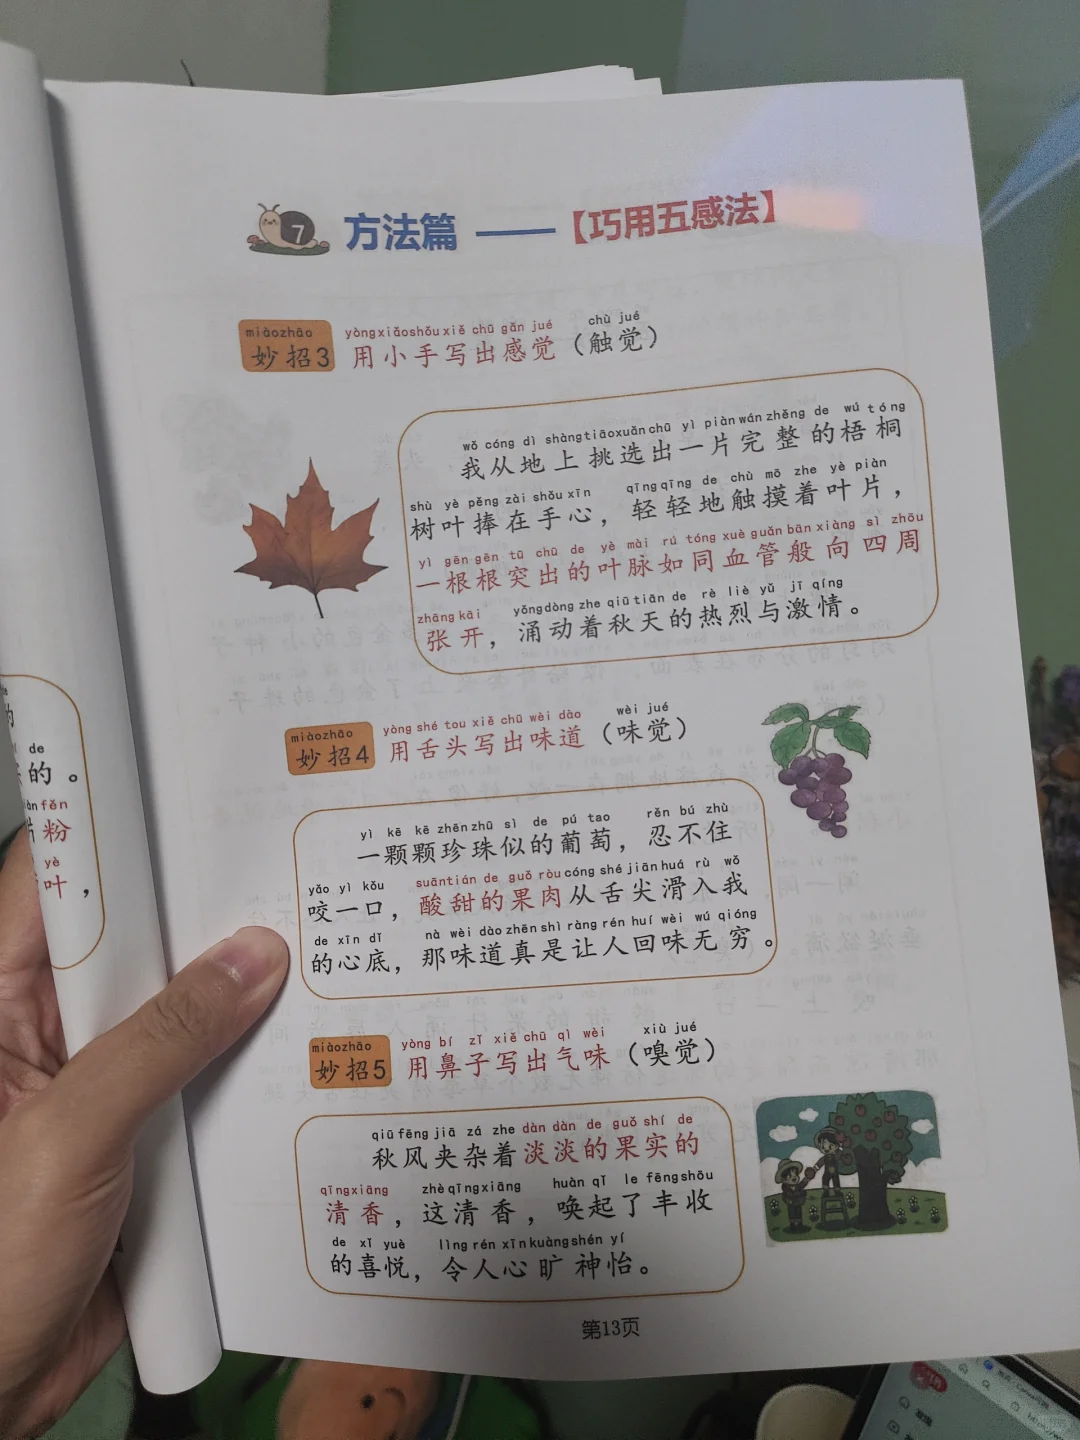 7 方法篇 ——【巧用五感法】
miàozhāo yòngxiǎoshǒuxiě chū gǎn jué chù jué
妙招3 用小手写出感觉（触觉）
wǒ cóng dì shàngtiāoxuǎnchū yì piànwánzhěng de wú tóng
我从地上挑选出一片完整的梧桐
shù yè pěng zài shǒu xīn qīngqīng de chù mō zhe yè piàn
树叶捧在手心，轻轻地触摸着叶片，
yì gēngēn tū chū de yè mài rú tóng xuè guǎn bān xiàng sì zhōu
一根根突出的叶脉如同血管般向四周
zhāng kāi yǒngdòng zhe qiūtiān de rè liè yǔ jī qíng
张开，涌动着秋天的热烈与激情。
miàozhāo yòng shé tou xiě chū wèi dào wèi jué
妙招4 用舌头写出味道（味觉）
yì kē kē zhēnzhū sì de pú tao rěn bú zhù
一颗颗珍珠似的葡萄，忍不住
yǎo yì kǒu suāntián de guǒ ròu cóng shé jiānhuá rù wǒ
咬一口，酸甜的果肉从舌尖滑入我
de xīn dǐ nà wèi dàozhēnshì ràng rén huí wèi wú qióng
的心底，那味道真是让人回味无穷。
miàozhāo yòng bí zǐ xiě chū qì wèi xiù jué
妙招5 用鼻子写出气味（嗅觉）
qiūfēng jiā zá zhe dàn dàn de guǒ shí de
秋风夹杂着淡淡的果实的
qīngxiāng zhè qīngxiāng huàn qǐ le fēngshōu
清香，这清香，唤起了丰收
de xǐ yuè lìng rén xīnkuàngshén yí
的喜悦，令人心旷神怡。
第13页
de
的。
fěn
粉
yè
叶，